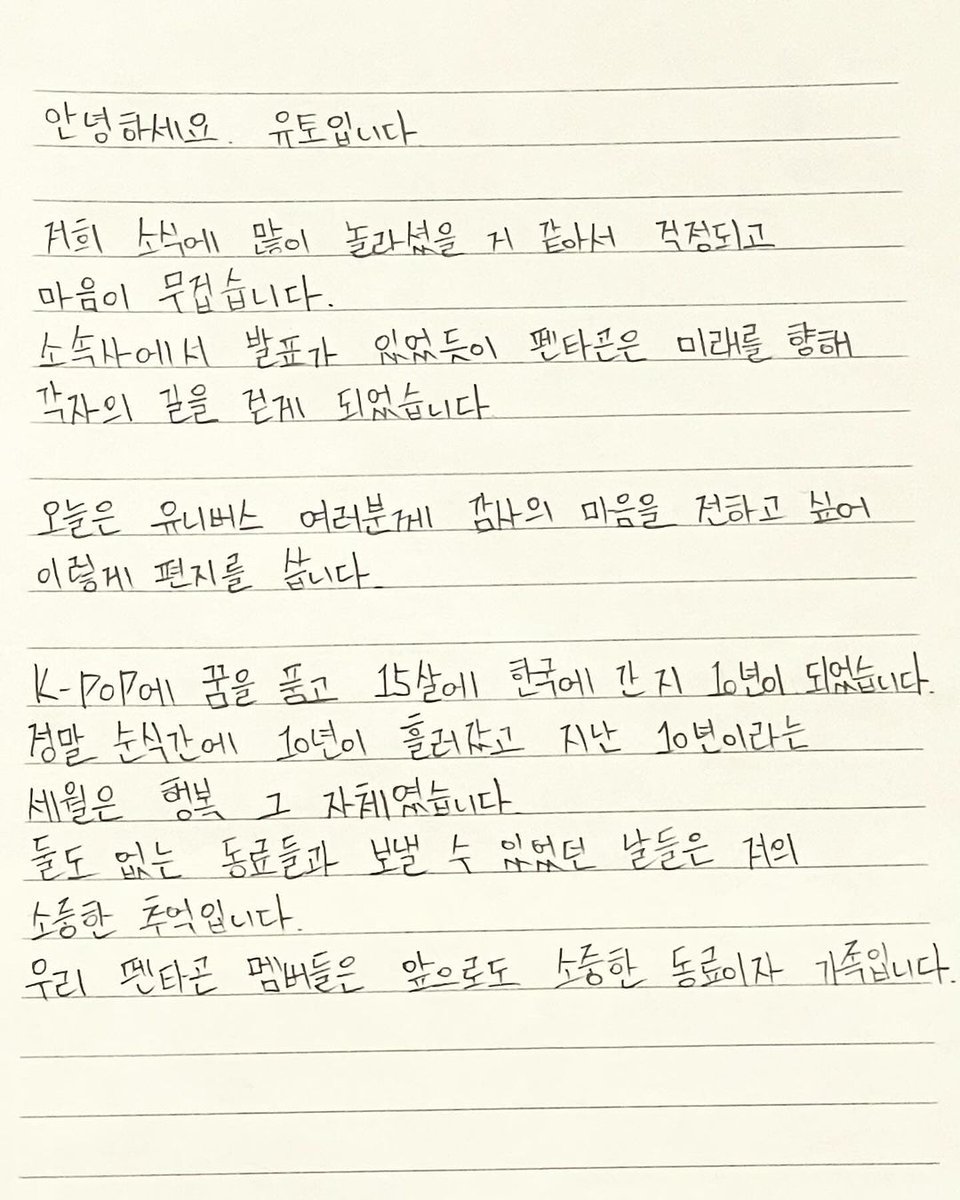 안녕하세요. 유토입니다
저희 소식에 많이 놀라셨을 거 같아서 걱정되고
마음이 무겁습니다.
소속사에서 발표가 있었듯이 펜타곤은 미래를 향해
각자의 길을 걷게 되었습니다
오늘은 유니버스 여러분께 감사의 마음을 전하고 싶어
이렇게 편지를 씁니다.
K-POP에 꿈을 품고 15살에 한국에 간 지 10년이 되었습니다.
정말 순식간에 10년이 흘러갔고 지난 10년이라는
세월은 행복 그 자체였습니다.
둘도 없는 동료들과 보낼 수 있었던 날들은 저의
소중한 추억입니다.
우리 펜타곤 멤버들은 앞으로도 소중한 동료이자 가족입니다.